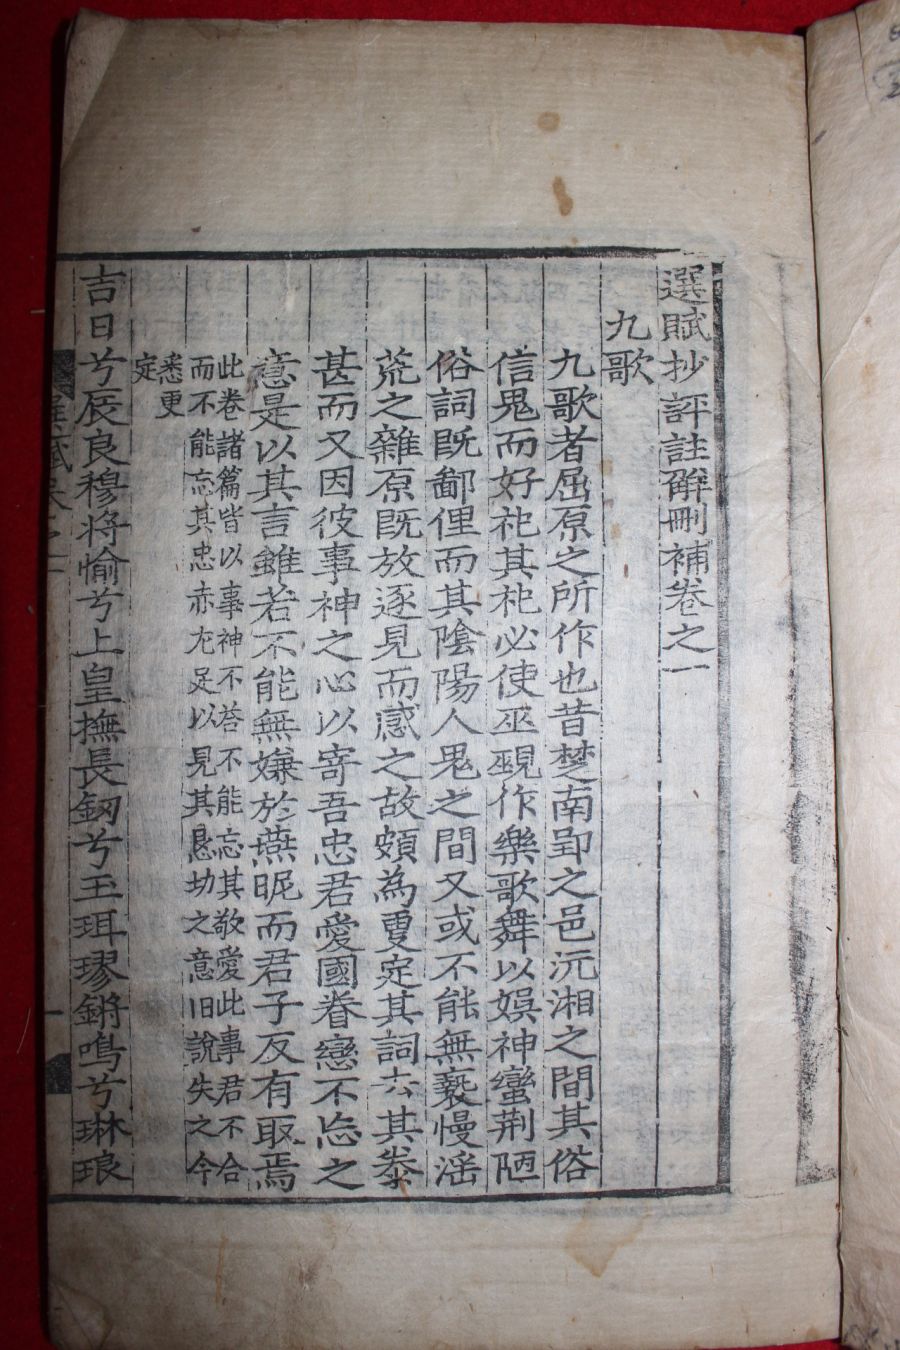 選賦抄評註觧刪補卷之一
九歌
九歌者屈原之所作也昔楚南郢之邑沅湘之間其俗
信鬼而好祀其祀必使巫覡作樂歌舞以娯神蠻荆陋
俗詞旣鄙俚而其陰陽人鬼之間又或不能無褻慢淫
荒之雜原旣放逐見而感之故頗為更定其詞去其泰
甚而又因彼事神之心以寄吾忠君愛國眷戀不忘之
意是以其言雖若不能無嫌於燕昵而君子反有取焉
此卷諸篇皆以事神不荅不能忘其敬愛比事君不合
而不能忘其忠赤尢足以見其懇切之意旧說失之今
悉更
定
吉日兮辰良穆將愉兮上皇撫長釰兮玉珥璆鏘鳴兮琳琅